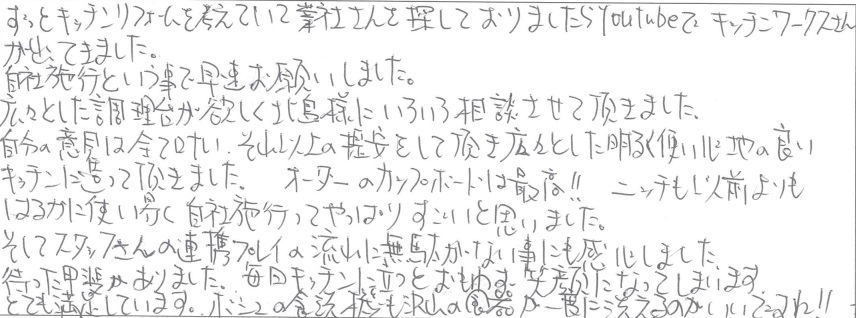 ずっとキッチンリフォームを考えていて業社さんを探しておりましたらYoutubeで キッチンワークスさん
が出てきました。
自社施行という事で早速お願いしました。
広々とした調理台が欲しく北島様にいろいろ相談させて頂きました。
自分の意見は全てOKい、それ以上の提案をして頂き広々とした明るく使い心地の良い
キッチンに造って頂きました。 オーダーのカップボードは最高!! ニッチも以前よりも
はるかに使い易く自社施行ってやっぱりすごいと思いました。
そしてスタッフさんの連携プレイの流れに無駄がない事にも感心しました
待った甲斐がありました。毎日キッチンに立つとおもわず笑顔になってしまいます。
とても満足しています。ボッシュの食洗機も沢山の食器が一度に洗えるのがいいですね!!